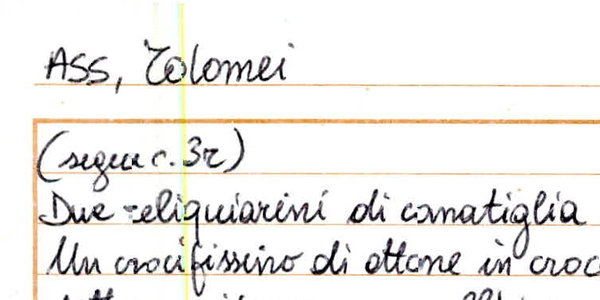 ASS, Tolomei
(segue c. 3r)
Due reliquiarini di canatiglia
Un crocifissino di ottone in croc